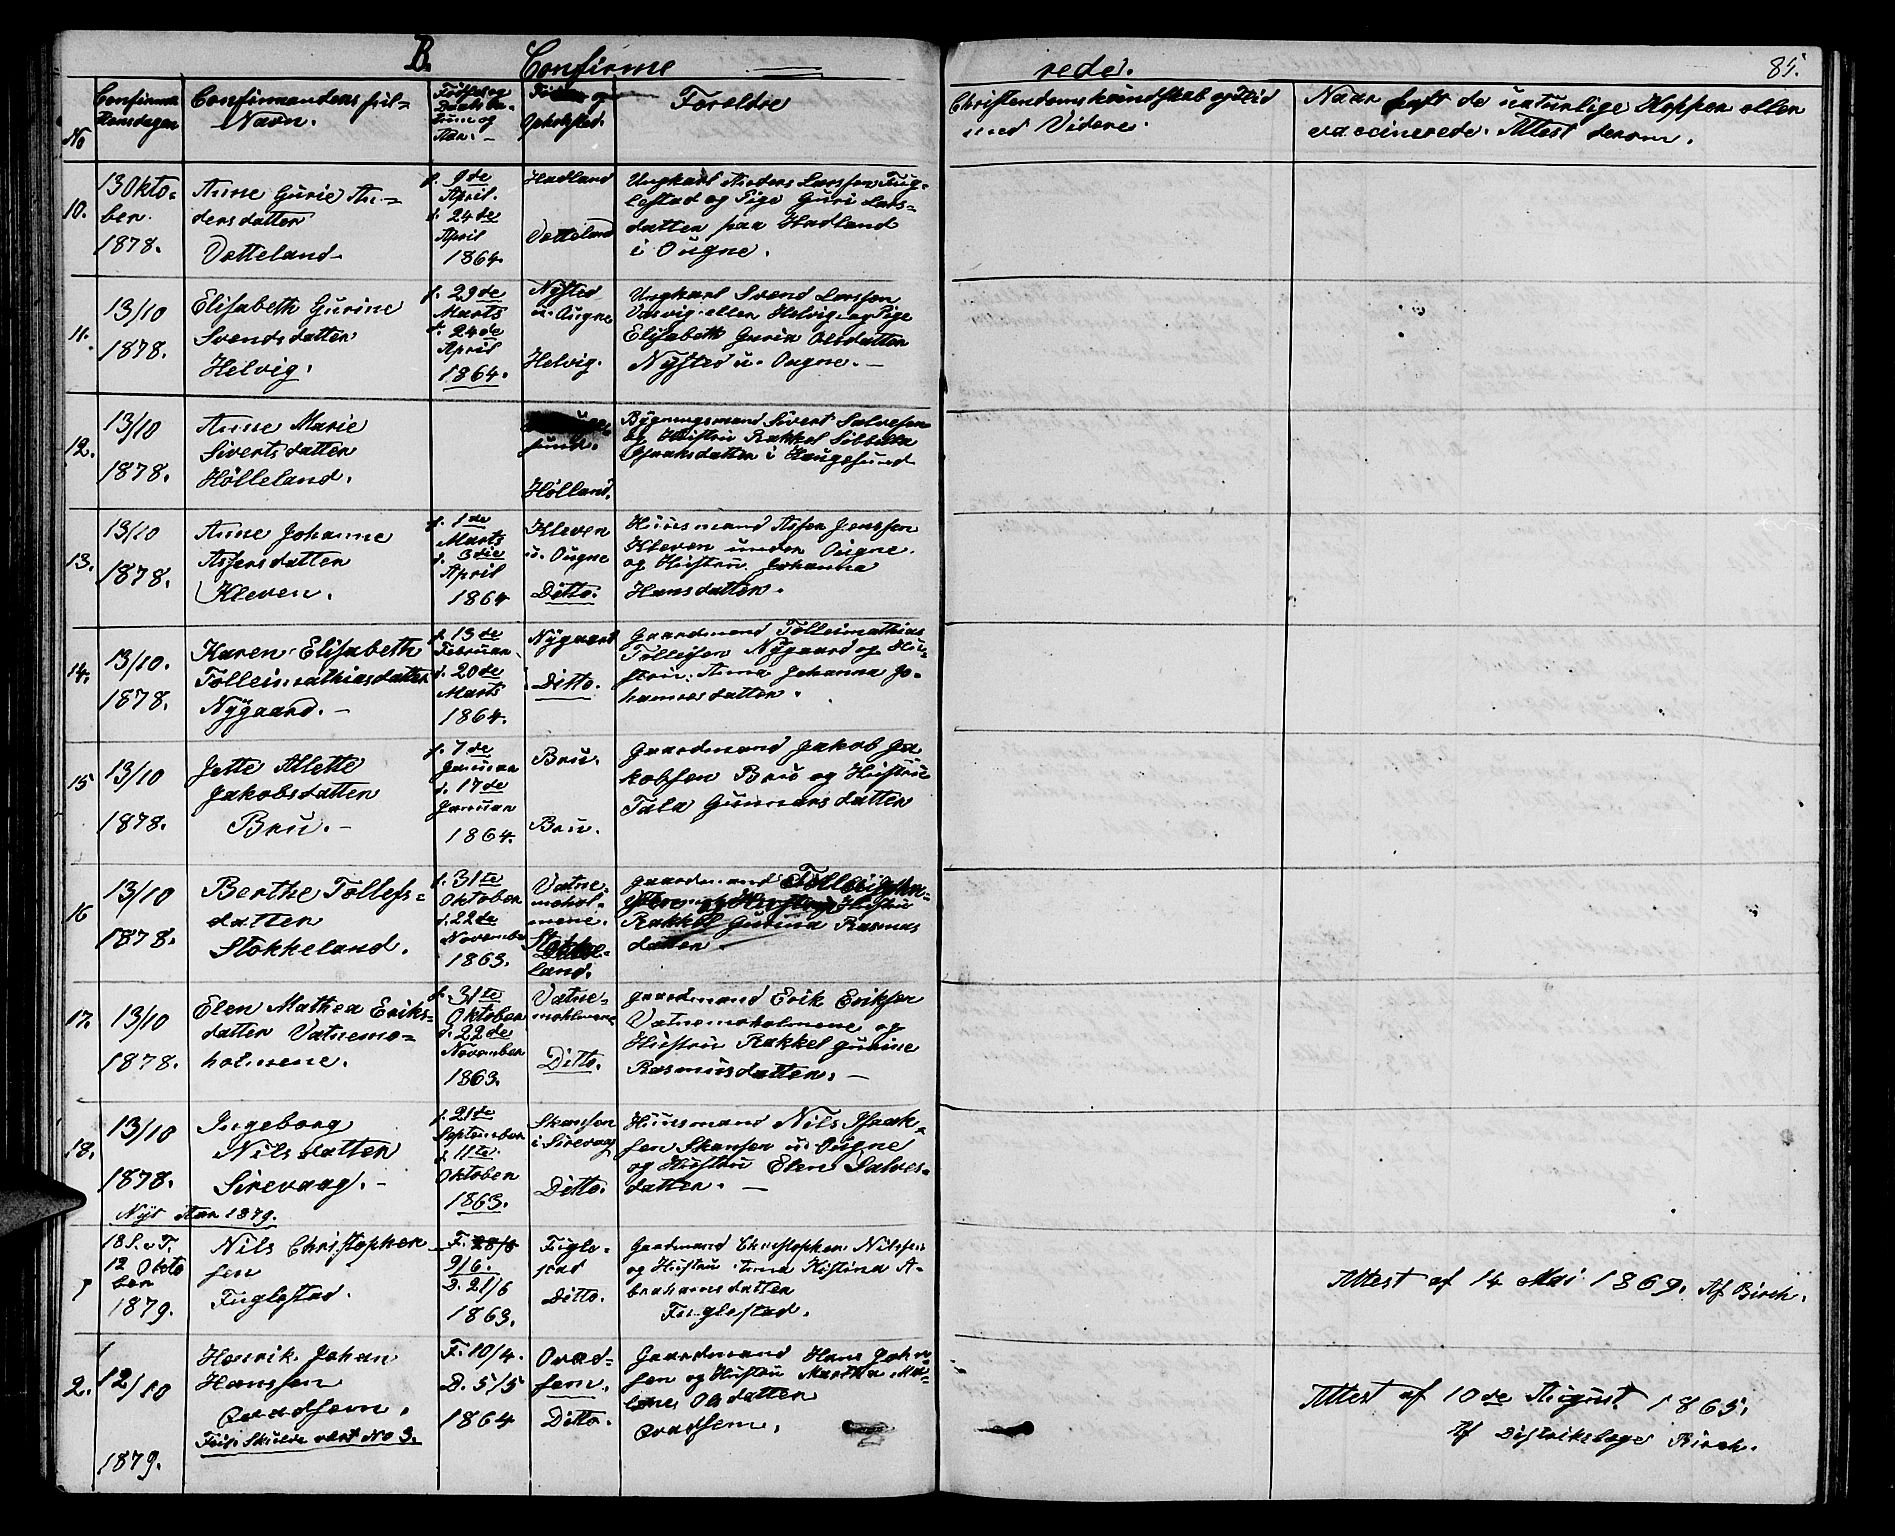 B. Confirme
rede. 85.
No
Confirma
tionsdagen
Confirmandens ful-
Navn.
Fødsels og
Daabs Da-
tum og
Aar. -
Opholdsted.
Foreldre
Christendomskundskab og Flid
med Videre.
Naar haft de naturlige Kopper eller
vaccinerede. Attest derom.
10.
13 Okto-
ber.
1878.
Anne Gurie An-
dersdatter
Vetteland.
f. 9de
April.
d. 24de
April
1864.
Hadland
Vetteland
Ungkarl Anders Larssen Fug-
lestad og Pige Guri Lars-
datter paa Hadland
i Ougne.
11.
13/10
1878.
Elisabeth Gurine
Svendsdatter
Helvig.
f. 29de
Marts
d. 24de
April
1864.
Nysted
u. Ougne
Helvig.
Ungkarl Svend Larssen
eller Helvig og Pige
Elisabeth Gurin Olsdatter
Nysted u. Ougne. -
12.
13/10
1878.
Anne Marie
Sivertsdatter
Hölleland.
sund.
Hölland.
Bygningsmand Sivert Salvesen
og Hustru Rakkel
Isaaksdatter i Haugesund
13.
13/10
1878.
Anne Johanne
Assersdatter
Kleven.
f. 1de
Marts
d. 3die
April
1864
Kleven
u. Ougne
Ditto.
Huusmand Asser Jenssen
Kleven under Ougne.
og Hustru Johanna
Hansdatter.
14.
13/10.
1878.
Karen Elisabeth
Tolleimathiasdatter
Nÿgaard. -
f. 13de
Februar
d. 20de
Marts
1864.
Nÿgaard
Ditto.
Gaardmand Tolleimathias
Tolleifsen Nÿgaard og Hu-
stru Anna Johanna Jo-
hannesdatter.
15
13/10
1878.
Jette Alette
Jakobsdatter
Bru. -
f. 7de
Januar
d. 17de
Januar
1864.
Bru.
Bru.
Gaardmand Jakob Ja
kobsen Bru og Hustru
Tala Gunnarsdatter
16
13/10
1878.
Berthe Tollefs-
datter
Stokkeland.
f. 31te
Oktober
d. 22de
November
1863.
Vatne-
mohol-
mene.
land.
Gaardmand
Hustru
Rakkel Gurina Rasmus
datter
17.
13/10
1878.
Elen Mathea Eriks-
datter Vatnemo-
holmene.
f. 31te
Oktober
d. 22de
November
1863.
Vatne-
moholmene
Ditto.
Gaardmand Erik Eriksen
Vatnemoholmene og
Hustru Rakkel Gurine
Rasmusdatter. -
18.
13/10
1878.
Ingeborg
Nilsdatter
Sirevaag. -
f. 21de
September
d. 11te
Oktober
1863.
Skansen
i Sirevaag
Ditto.
Huusmand Nils Isaak-
sen Skansen u. Ougne
og Hustru Elen Salves-
datter. -
Nyt Aar 1879.
1
18 S. e. T.
12 Okto
ber
1879.
Nils Christopher
sen
Fuglestad.
F. 28/5
9/6.
D. 21/6
1863.
Fugle-
stad
Ditto.
Gaardmand Christopher Nilssen
og Hustru Anna Kistina A-
brahamsdatter
Fuglestad.
Attest af 14 Mai 1869. Af Birch.
2.
12/10
1879.
Henrik Johan
Hanssen
Qvadsem.
Skulde vært No 3.
F. 10/4.
D. 5/5
1864
Qvad-
sem.
Ditto.
Gaardmand Hans John
sen og Hustru Martha Ma-
lene Olsdatter
Qvadsem.
Attest af 10de August 1865.
Af Distrikslæge Birch.